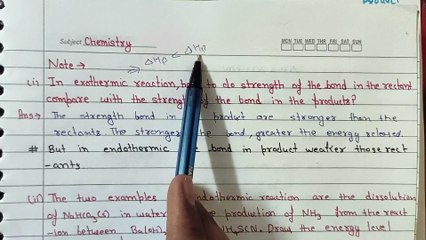 PRODUCT
Subject Chemistry
MON TUE WED THU FRI SAT SUN
Note → ΔHP < ΔHR
(i) In exothermic reaction, to do strength of the bond in the rectant
compare with the strength of the bond in the products?
Ans→ The strength bond in product are stronger than the
rectants The stronger the bond, greater the energy released.
# But in endothermic bond in product weaker those rect
-ants.
(ii) The two examples endothermic reaction are the dissolution
of NaHCO3(s) in water production of NH3 from the react
-ion between Ba(OH) NH4SCN. Draw the energy level